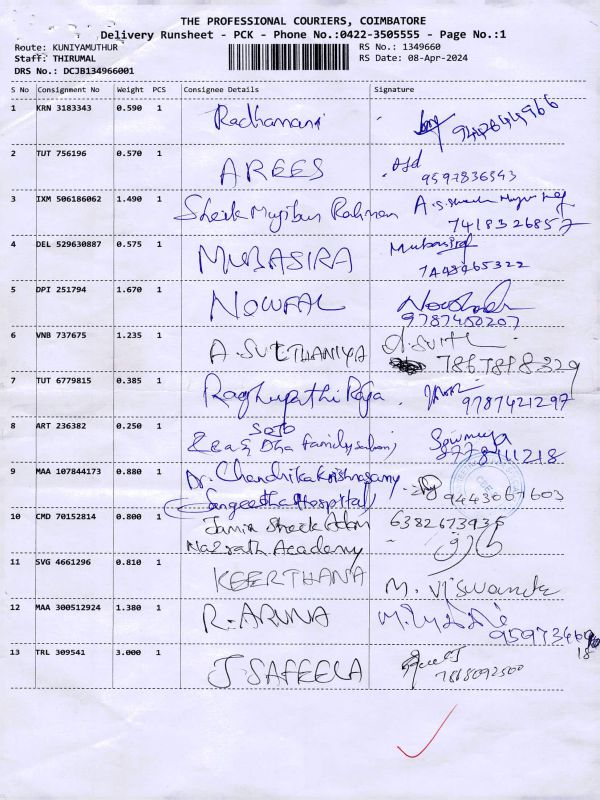 THE PROFESSIONAL COURIERS, COIMBATORE
Delivery Runsheet - PCK - Phone No.:0422-3505555 - Page No.:1
Route: KUNIYAMUTHUR RS No.: 1349660
Staff: THIRUMAL RS Date: 08-Apr-2024
DRS No.: DCJB134966001
S No Consignment No Weight PCS Consignee Details Signature
1 KRN 3183343 0.590 1 Radhamani
2 TUT 756196 0.570 1 AREES
9597836543
3 IXM 506186062 1.490 1 Sheik Mujibur Rahman
7418326857
4 DEL 529630887 0.575 1 MUBASIRA
5 DPI 251794 1.670 1 NOWFAL
9787450207
6 VNB 737675 1.235 1 A.
7 TUT 6779815 0.385 1 Raghupathi Raja
9787421297
8 ART 236382 0.250 1 Sowmiya
Dha family
8778411218
9 MAA 107844173 0.880 1 Dr. Chandrika Krishnasamy
Sangeetha Hospital 9443067603
10 CMD 70152814 0.800 1 6382673935
Academy
11 SVG 4661296 0.810 1 KEERTHANA M.
12 MAA 300512924 1.380 1 R. ARUNA
13 TRL 309541 3.000 1 J. SAFEELA
7868092500